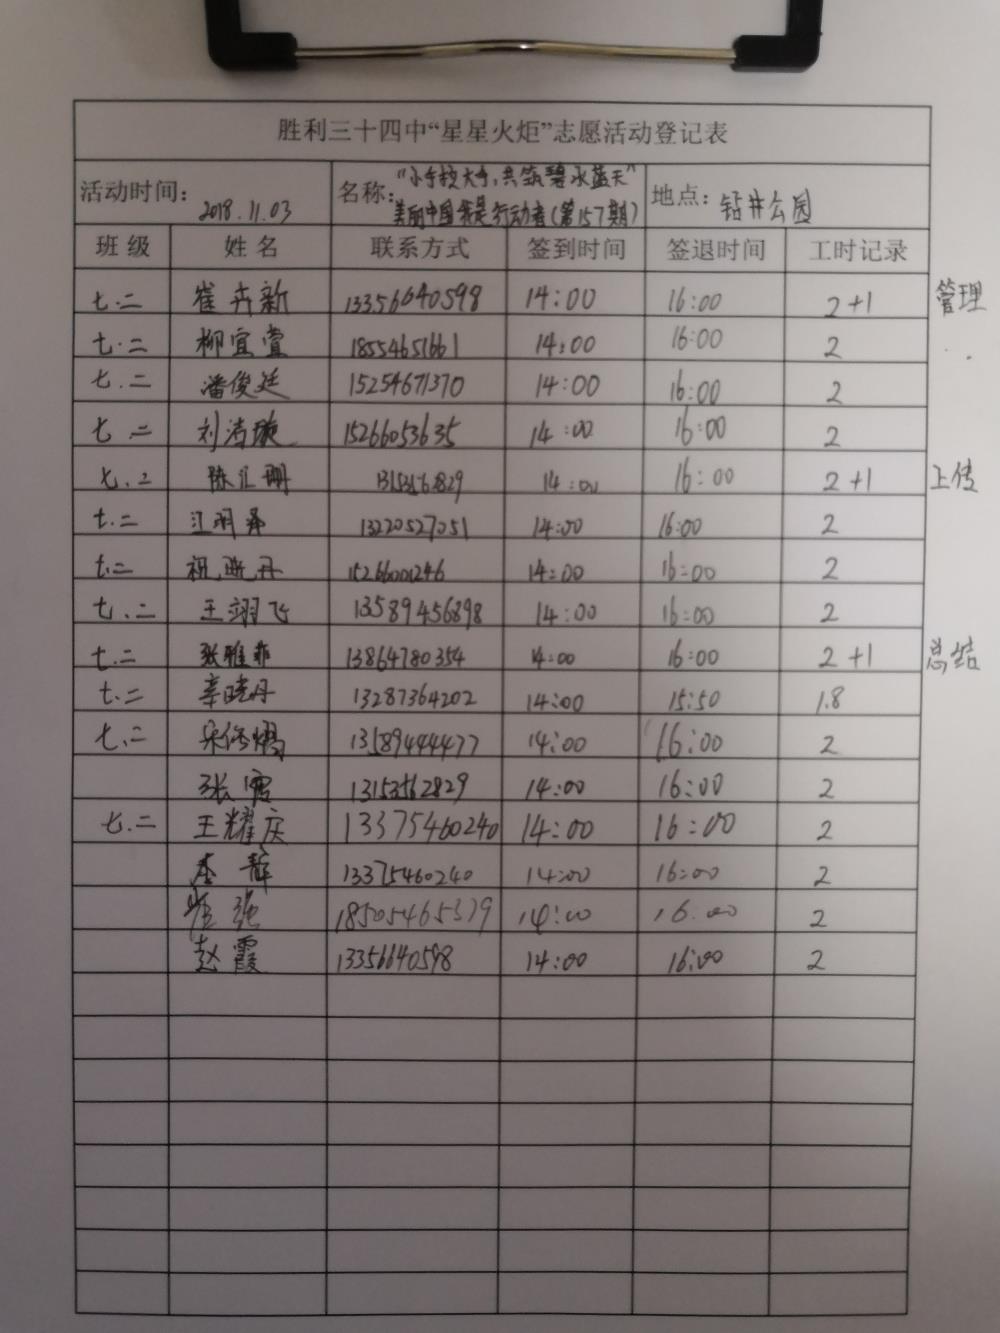 胜利三十四中“星星火炬”志愿活动登记表
活动时间: 2018.11.03 名称: “小手拉大手,共筑碧水蓝天” 美丽中国我是行动者(第157期) 地点: 钻井公园
班级 姓名 联系方式 签到时间 签退时间 工时记录
七.二 崔卉新 13356640598 14:00 16:00 2+1 管理
七.二 柳宜萱 18554651661 14:00 16:00 2
七.二 潘俊廷 15254671370 14:00 16:00 2
七.二 刘清璇 15266053635 14:00 16:00 2
七.2 陈汇珊 14:00 16:00 2+1 上传
七.二 江明泽 13220527051 14:00 16:00 2
七.二 祝晓丹 15266001246 14:00 16:00 2
七.二 王翊飞 13589456898 14:00 16:00 2
七.二 张雅菲 13864780354 14:00 16:00 2+1 总结
七.二 辛晓丹 13287364202 14:00 15:50 1.8
七.二 13589444477 14:00 16:00 2
张雪 13153562829 14:00 16:00 2
七.二 王耀庆 13375460240 14:00 16:00 2
李静 13375460240 14:00 16:00 2
崔强 18505465379 14:00 16:00 2
赵霞 13356640598 14:00 16:00 2